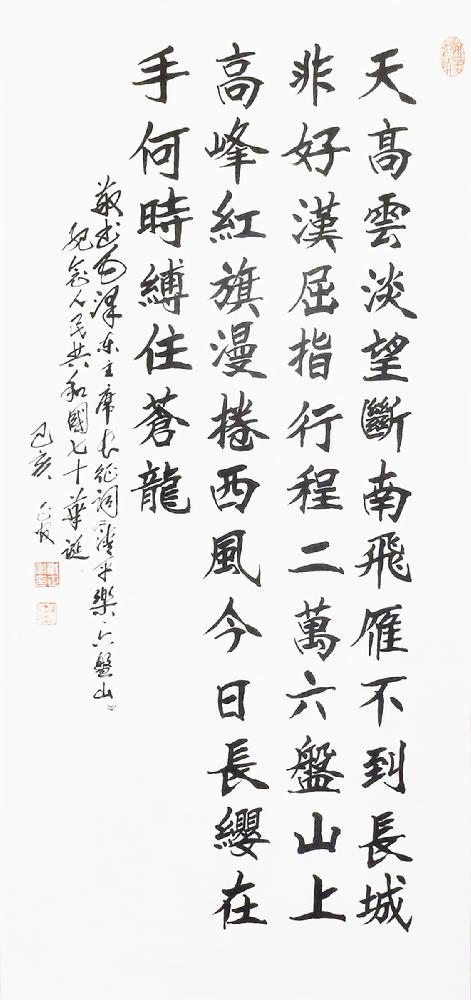 天高雲淡望斷南飛雁不到長城
非好漢屈指行程二萬六盤山上
高峰紅旗漫捲西風今日長纓在
手何時縛住蒼龍
敬书毛澤东主席长征词清平樂六盤山
纪念人民共和國七十華诞
己亥